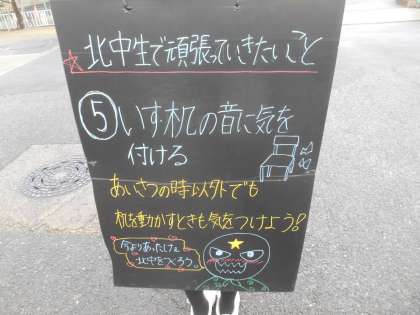 北中生で頑張っていきたいこと
⑤いす・机の音に気を
付ける
あいさつの時以外でも
机を動かすときも気をつけよう!
今よりあったけぇ
北中をつくろう。